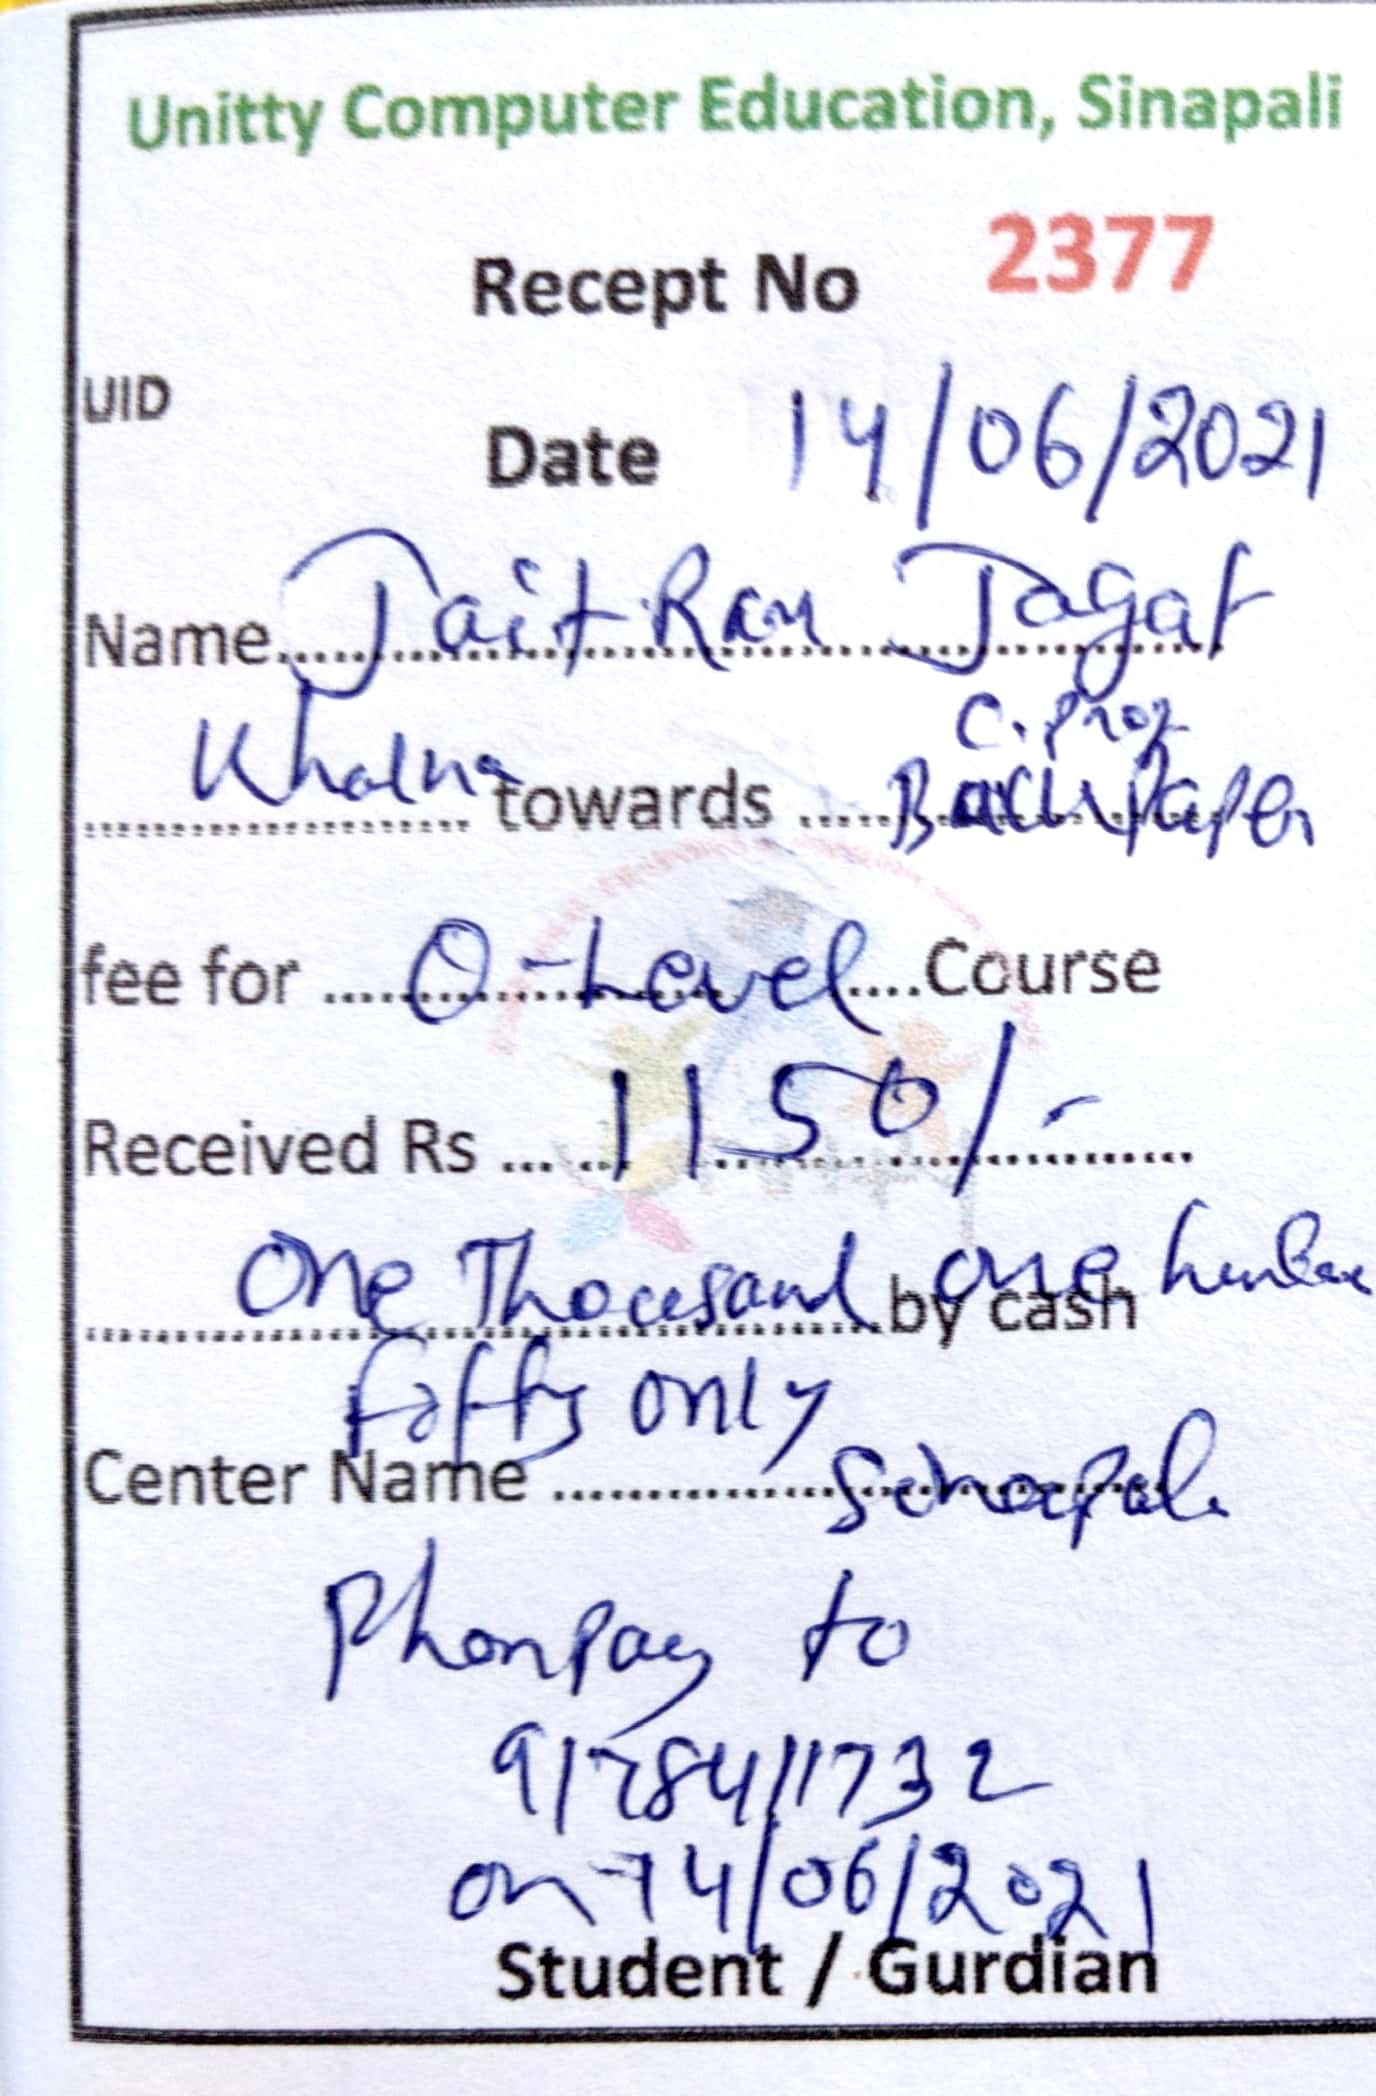 Unitty Computer Education, Sinapali
Recept No 2377
UID
Date 14/06/2021
Name Jait Ram Jagat
C. Proj
Khalna towards Back Paper
fee for O-Level Course
Received Rs 1150/-
One Thousand one by cash
fifty only
Center Name Sinapali
Phonpay to
on 14/06/2021
Student / Gurdian